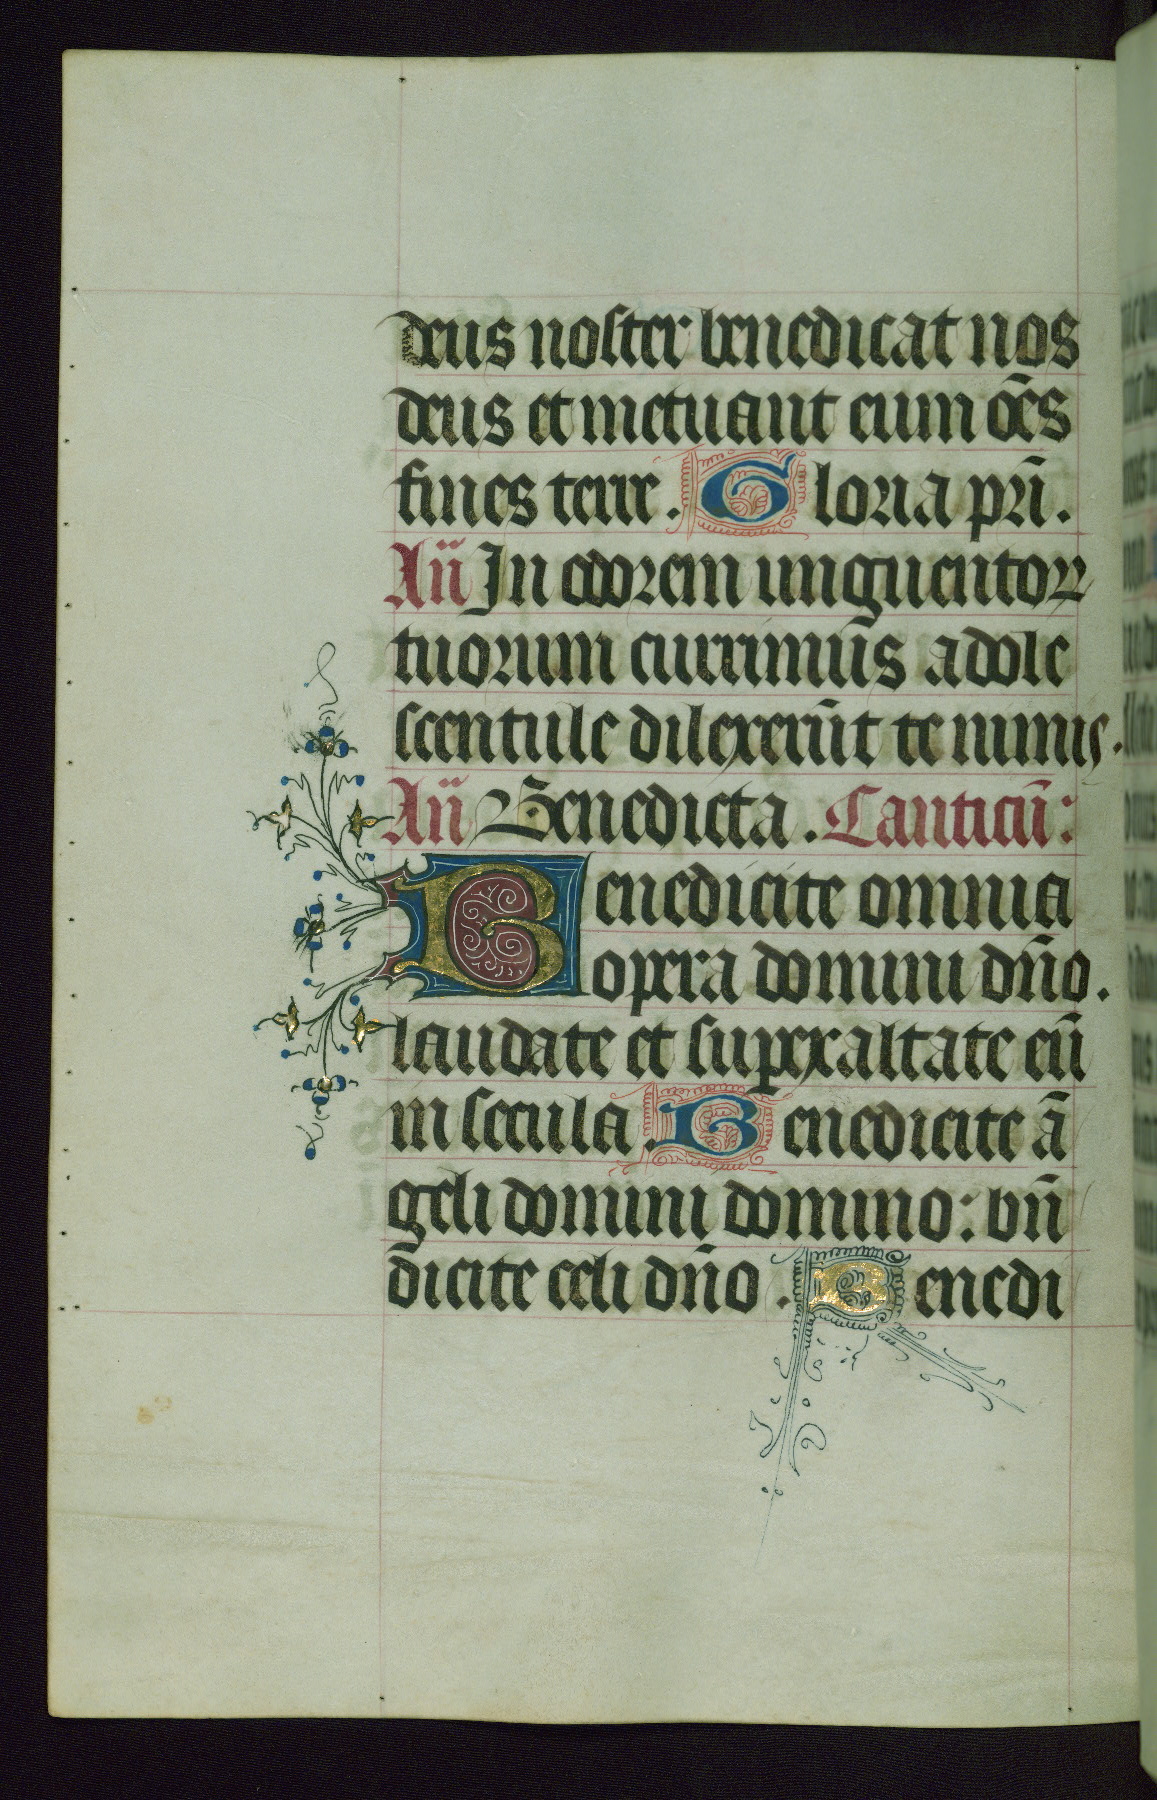 deus noster benedicat nos
deus et metuant eum oēs
fines terre. Gloria pr̄i.
Añ In odorem unguentoꝝ
tuorum currimus adole
scentule dilexerūt te nimis.
Añ Benedicta. Canticū:
Benedicite omnia
opera domini dn̄o.
laudate et superexaltate eū
in secula. Benedicite ā
geli domini domino: bn̄
dicite celi dn̄o. Benedi